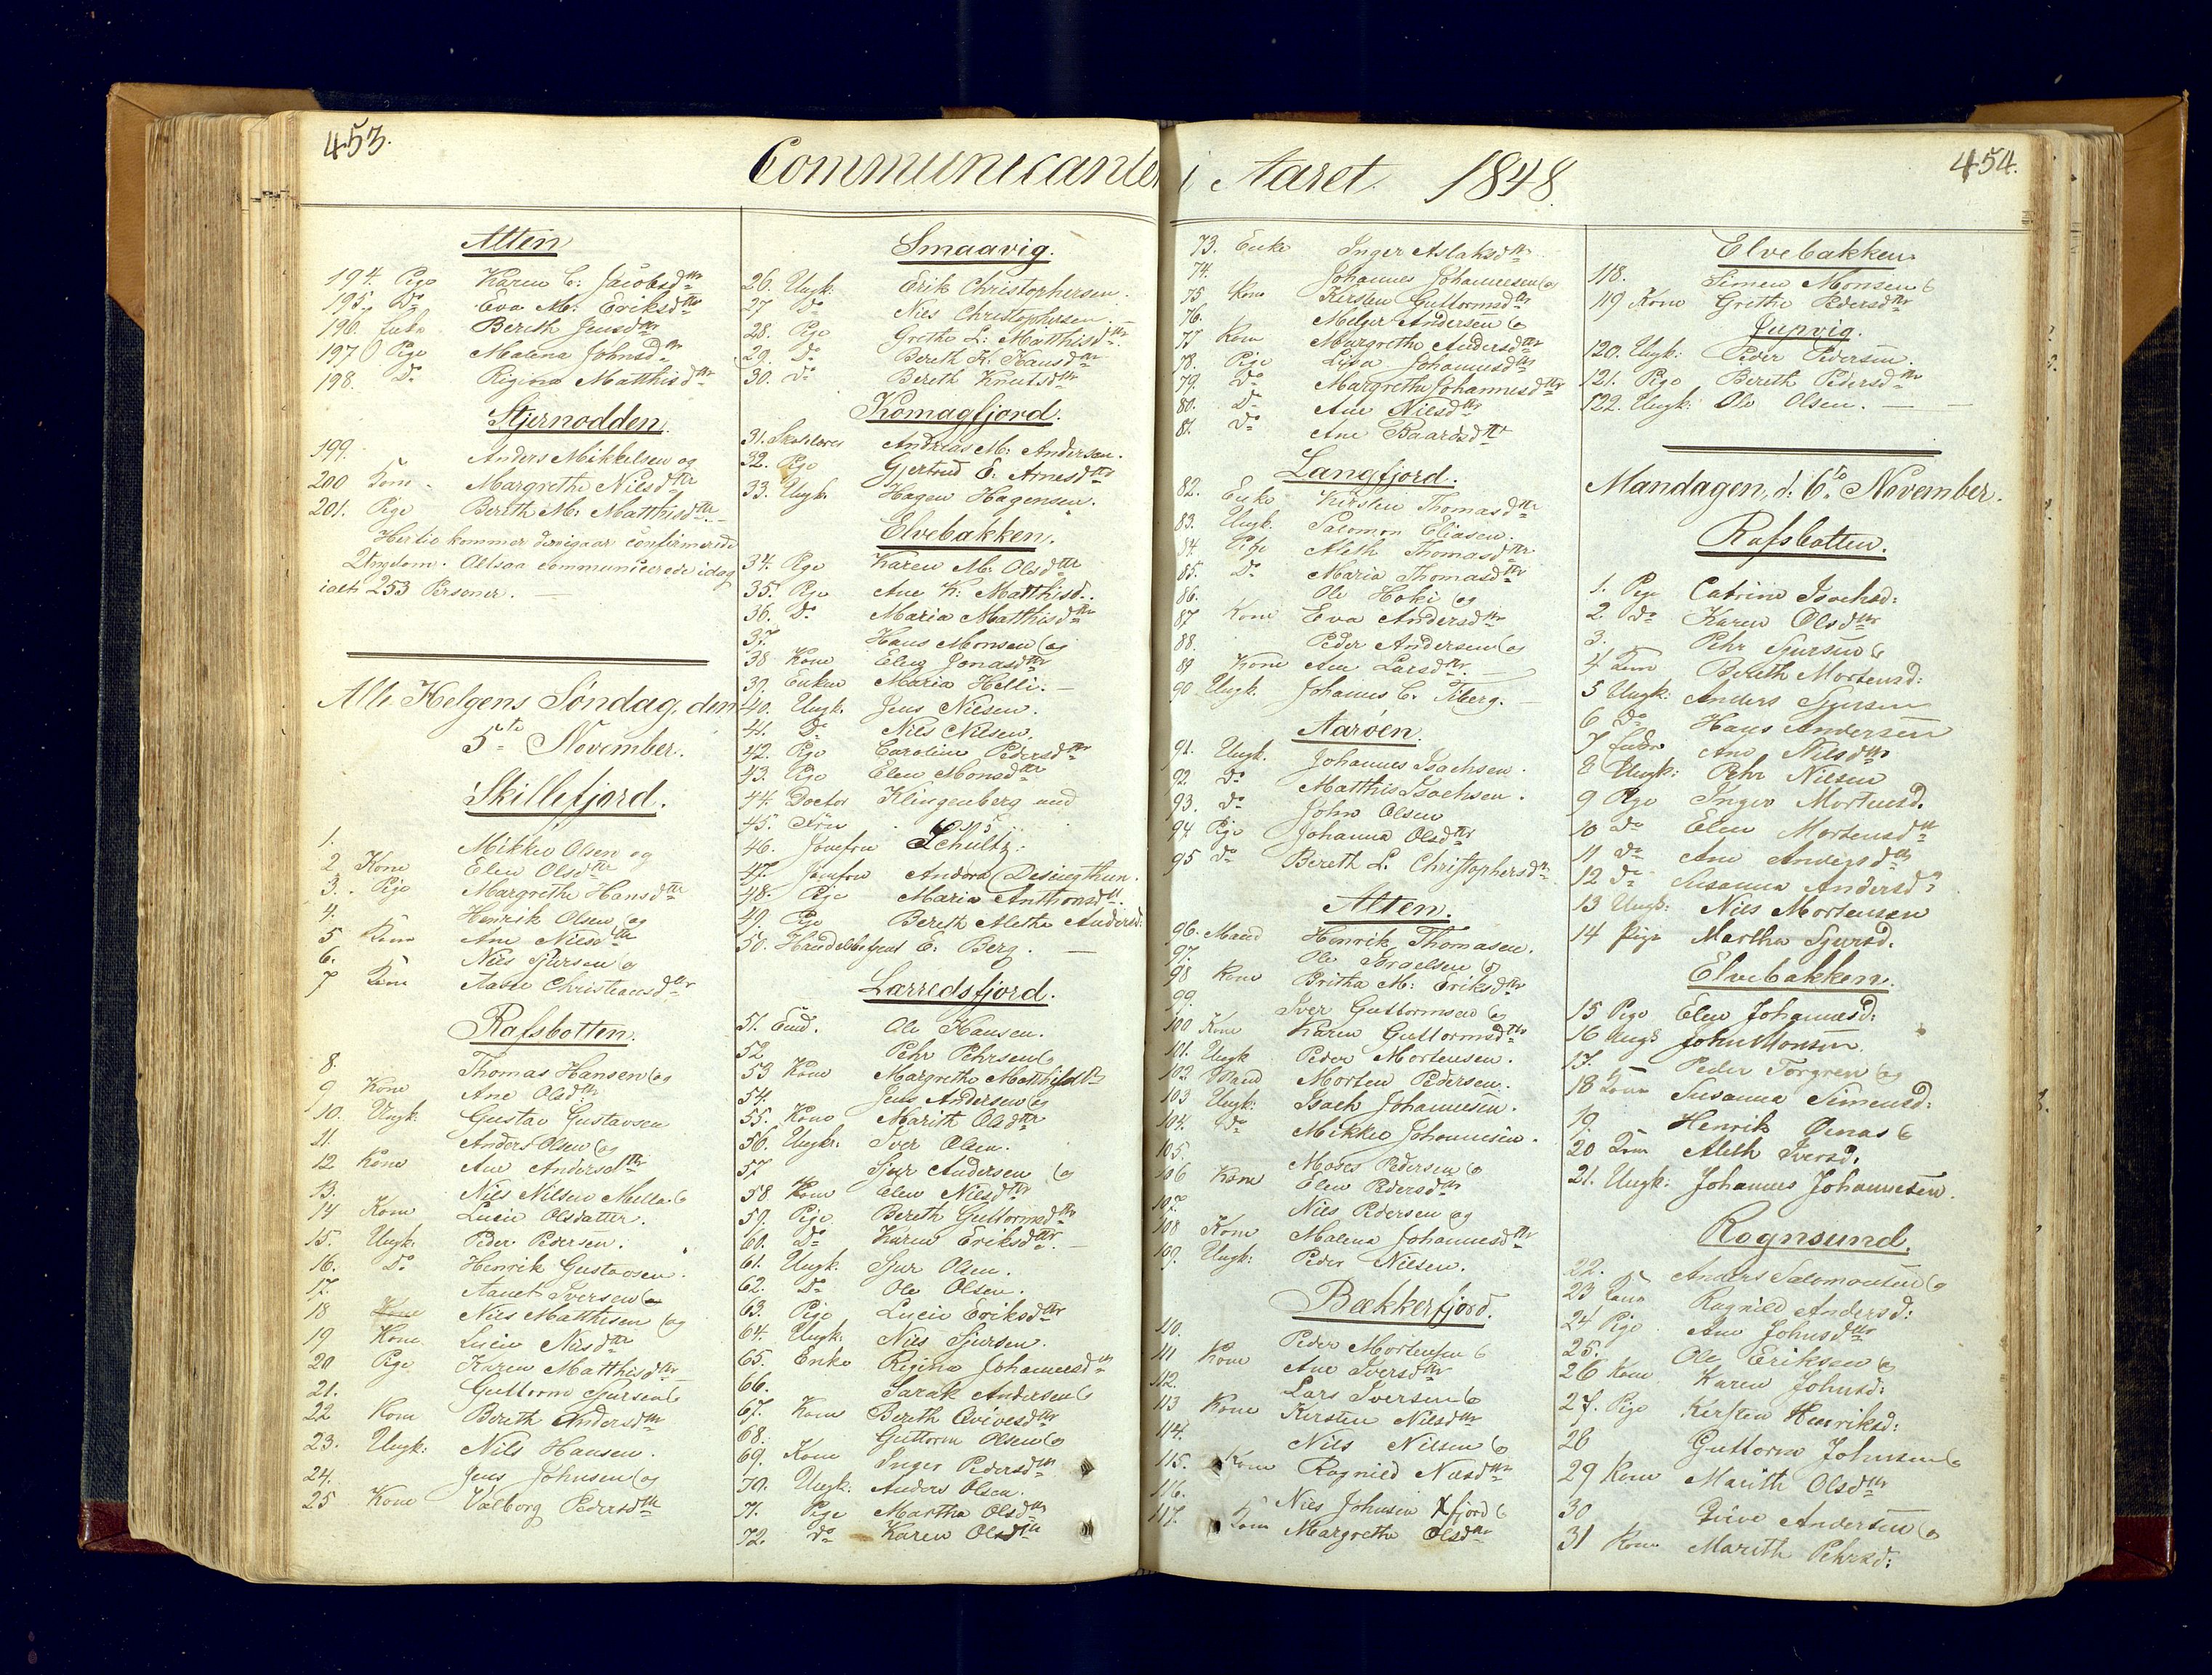 453.
Communicanter i Aaret 1848.
454.
Alten
194. Pige Karen C: Jacobsdtr
195. Do Eva M: Eriksdtr
196. Enke Berith Jensdtr
197 Pige Malena Johnsdtr
198. Do Rigina Matthisdtr
Stjernodden.
199. Anders Mikkelsen og
200 Kone Margrethe Nilsdtr
201. Pige Berith M: Matthisdtr
Hertil kommer den igaar confirmerede
Ungdom. Altsaa communicerede idag
ialt 253 Personer.
Alle Helgens Søndag, den
5te November.
Skillefjord.
1. Mikkel Olsen og
2 Kone Elen Olsdtr
3. Pige Margrethe Hansdtr
4. Henrik Olsen og
5 Kone Ane Nilsdtr
6. Nils Sjursen og
7 Kone Aase Christiansdtr
Rafsbotten.
8. Thomas Hansen og
9 Kone Ane Olsdtr
10. Ungk: Gustav Gustavsen
11. Anders Olsen og
12 Kone Ane Andersdtr
13. Nils Nilsen Mella og
14 Kone Lucie Olsdatter.
15. Ungk: Peder Pedersen.
16. Do Henrik Gustavsen.
17. Iversen
18 Kone Nils Matthisen og
19 Kone Lucie Nilsdtr
20 Pige Karen Matthisdtr
21. Guttorm Sjursen og
22 Kone Berith Andersdtr
23. Ungk: Nils Hansen.
24. Jens Johnsen og
25 Kone Valborg Pedersdtr
Smaavig.
26. Ungk: Erik Christophersen.
27 Do Nils Christophersen.
28. Pige Grethe L: Matthisdtr
29. Do Bereth K. Hansdtr
30. Do Bereth Knutsdtr
Komagfjord.
31. Skolelærer Andreas M: Andersen.
32. Pige Gjertrud E: Arnesdtr
33. Ungk: Hagen Hagensen.
Elvebakken.
34. Pige Karen M: Olsdtr
35. Pige Ane K: Matthisd.
36. Do Maria Matthisdtr
37. Hans Monsen og
38 Kone Eleg Jonasdtr
39. Enken Maria Helli.
40. Ungk. Jens Nilsen.
41. Do Nils Nilsen.
42. Pige Caroline Pedersdtr
43. Pige Elen Monsdtr
44. Doctor Klingenberg med
45. Frue
46. Jomfru Schultz.
47. Jomfru Andora Desingthun.
48. Pige Maria Anthonsdtr
49. Pige Bereth Alethe Andersd:
50. Handelsbetjent E: Berg.
Larredsfjord.
51. Emd. Ole Hansen.
52 Pehr Pehrsen og
53 Kone Margrethe Matthisdtr
54. Jens Andersen og
55. Kone Marith Olsdtr
56. Ungkr: Iver Olsen.
57. Sjur Andersen og
58. Kone Elen Nilsdtr
59. Pige Bereth Guttormsdtr
60. Do Karen Eriksdtr
61. Ungk. Sjur Olsen.
62. Do Ole Olsen.
63. Pige Lucie Eriksdtr
64. Ungk: Nils Sjursen.
65. Enke Regina Johannesdtr
66. Sarak Andersen og
67. Kone Bereth Qvivesdtr
68. Guttorm Olsen og
69. Kone Inger Pedersdtr
70. Ungk: Anders Olsen.
71. Pige Martha Olsdtr
72. Do Karen Olsdtr
73. Enke Inger Aslaksdtr
74. Johannes Johannesen og
75 Kone Kirsten Guttormsdtr
76. Melger Andersen og
77 Kone Margrethe Andersdtr
78. Pige Lisa Johannesdtr
79. Do Margrethe Johannesdtr
80. Do Ane Nilesdtr
81. Do Ane Baardsdtr
Langfjord.
82. Enke Kirsten Thomasdtr
83. Ungk. Salomon Eliasen.
84. Pige Aleth Thomasdtr
85. Do Maria Thomasdtr
86. Ole Hoki og
87 Kone Eva Andersdtr
88. Peder Andersen og
89 Kone Ane Larsdtr
90 Ungk. Johannes C: Aberg.
Aarøen.
91. Ungk. Johannes Isachsen.
92. Do Matthis Isachsen.
93. Do John Olsen
94 Pige Johanna Olsdtr
95 Do Bereth L. Christophersdtr
Alten.
96. Mand Henrik Thomasen.
97. Ole Israelsen og
98 Kone Britha M: Eriksdtr
99. Iver Guttormsen og
100 Kone Karen Guttormsdtr
101. Ungk Peder Mortensen.
102. Mand Morten Pedersen.
103 Ungk: Isach Johannesen.
104. Do Mikkel Johannesen.
105. Moses Pedersen og
106 Kone Elen Pedersdtr
107. Nils Pedersen og
108 Kone Malena Johannesdtr
109. Ungk: Peder Nilsen.
Bækkerfjord.
110. Peder Mortensen og
111 Kone Ane Iversdtr
112. Lars Iversen og
113 Kone Kirsten Nilsdtr
114. Nils Nilsen og
115. Kone Ragnild Nilsdtr
116. Nils Johnsen Xfjord og
117. Kone Margrethe Olsdtr
Elvebakken.
118. Simen Monsen og
119 Kone Grethe Pedersdtr
Jupvig.
120. Ungk: Peder Pedersen.
121. Pige Bereth Pedersdtr
122. Ungk: Ole Olsen.
Mandagen, d. 6te November.
Rafsbotten.
1. Pige Catrine Isachsd:
2. Do Karen Olsdtr
3. Pehr Sjursen og
4 Kone Bereth Mortensd:
5 Ungk: Anders Sjursen
6 Do Hans Andersen
7 Enke Ane Nilsdtr
8 Ungk: Pehr Nilsen
9 Pige Inger Mortensd.
10 Do Elen Mortensdtr
11 Do Ane Andersdtr
12 Do Susanna Andersd:
13 Ungk: Nils Mortensen
14 Pige Martha Sjursd.
Elvebakken.
15 Pige Elen Johannesd:
16 Ungk John Monsen.
17. Peder Torgren og
18 Kone Susanna Simensd:
19. Henrik Ounas og
20 Kone Aleth Iversd.
21. Ungk: Johannes Johannesen.
Rognsund.
22. Anders Salomonsen og
23 Kone Ragnild Andersd:
24 Pige Ane Johnsdtr
25. Ole Eriksen og
26 Kone Karen Johnsd:
27. Pige Kersten Henriksd:
28 Guttorm Johnsen og
29 Kone Marith Olsdtr
30 Qvive Andersen og
31 Kone Marith Pehrsd: